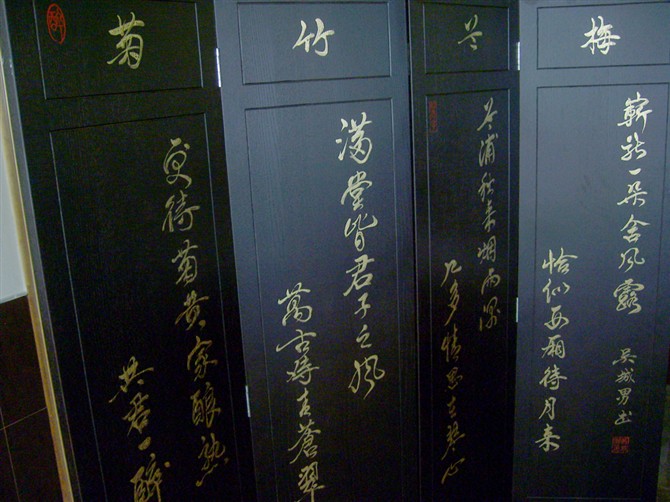 梅
嶄新一朵含風露
恰似西廂待月來
吴城男书
兰
兰浦秋来烟雨深
几多情思在琴心
竹
满堂皆君子之風
萬古對青蒼翠
菊
更待菊黄家酿熟
共君一醉